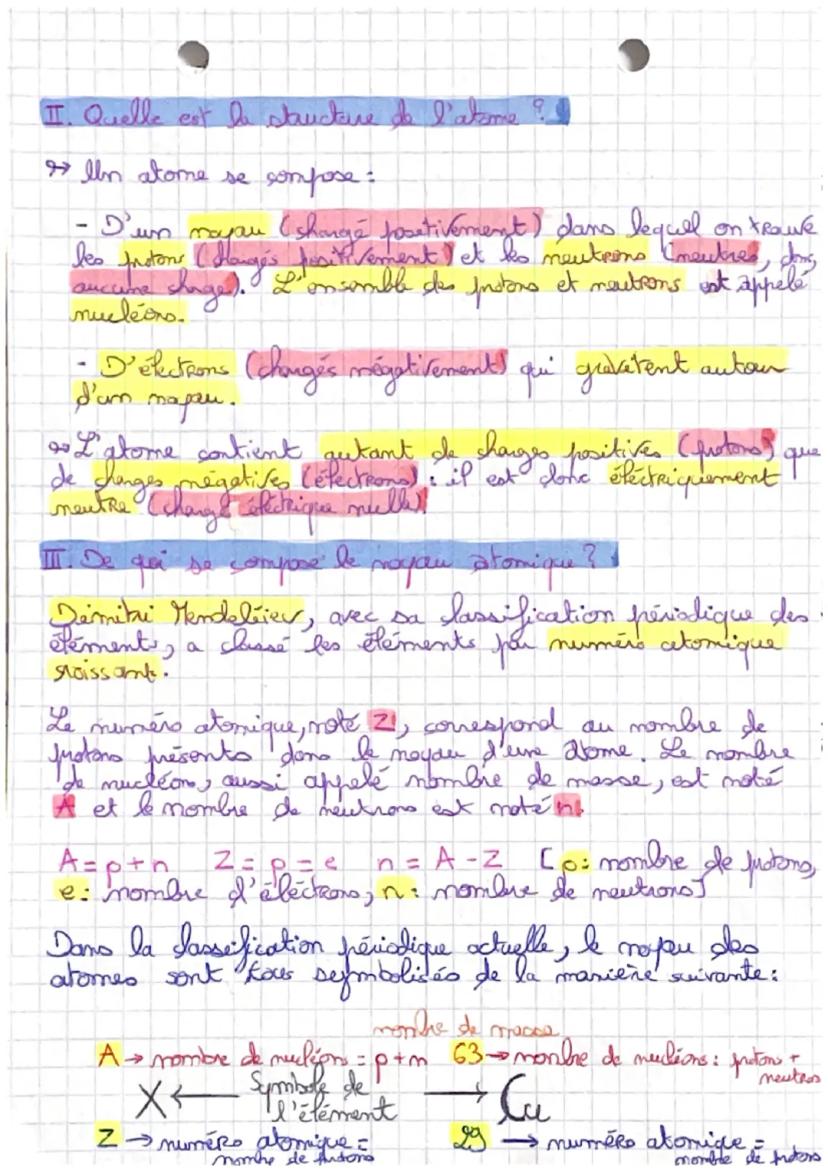 II. Quelle est la structure de l'atome ?
↬ Un atome se compose :
- D'un noyau (chargé positivement) dans lequel on trouve
les protons (chargés positivement) et les neutrons (neutres, donc
aucune charge). L'ensemble des protons et neutrons est appelé
nucléons.
- D'électrons (chargés négativement) qui gravitent autour
d'un noyau.
↬ L'atome contient autant de charges positives (protons) que
de charges négatives (électrons) : il est donc électriquement
neutre (charge électrique nulle).
III. De qoi se compose le noyau atomique ?
Démitri Mendeléiev, avec sa classification périodique des
éléments, a classé les éléments par numéro atomique
croissant.
Le numéro atomique, noté Z, correspond au nombre de
protons présents dans le noyau d'une atome. Le nombre
de nucléon, aussi appelé nombre de masse, est noté
A et le nombre de neutrons est noté n.
A = p + n Z = p = e n = A - Z [p : nombre de protons,
e : nombre d'électrons, n : nombre de neutrons]
Dans la classification périodique actuelle, le noyau des
atomes sont tous symbolisés de la manière suivante :
nombre de masse
A → nombre de nucléons = p + n 63 → nombre de nucléons : protons +
neutrons
X ← Symbole de → Cu
l'élément
Z → numéro atomique = 29 → numéro atomique =
nombre de protons nombre de protons